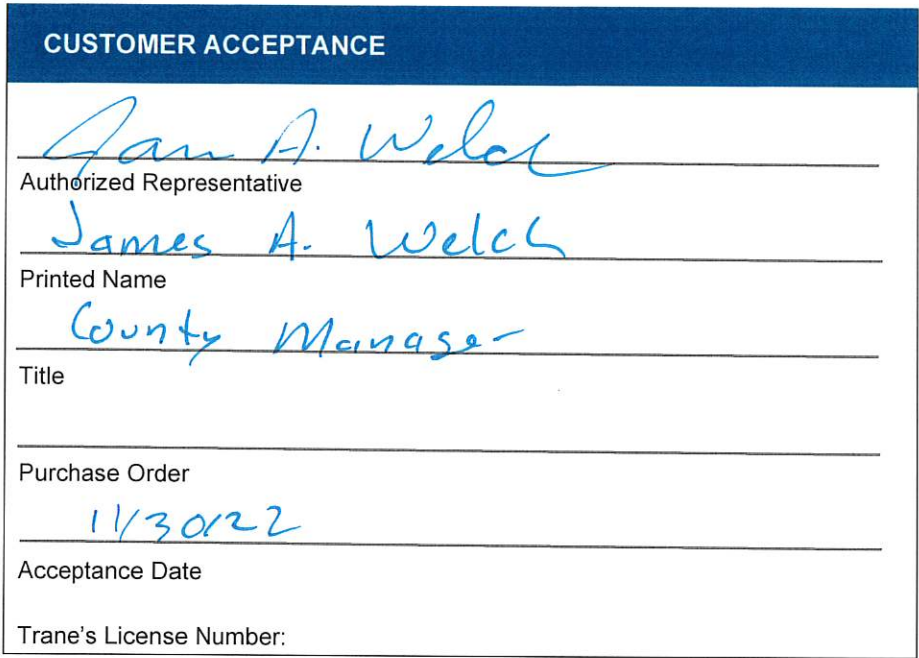 CUSTOMER ACCEPTANCE
James A. Welch
Authorized Representative
James A. Welch
Printed Name
County Manager
Title
Purchase Order
11/30/22
Acceptance Date
Trane's License Number: